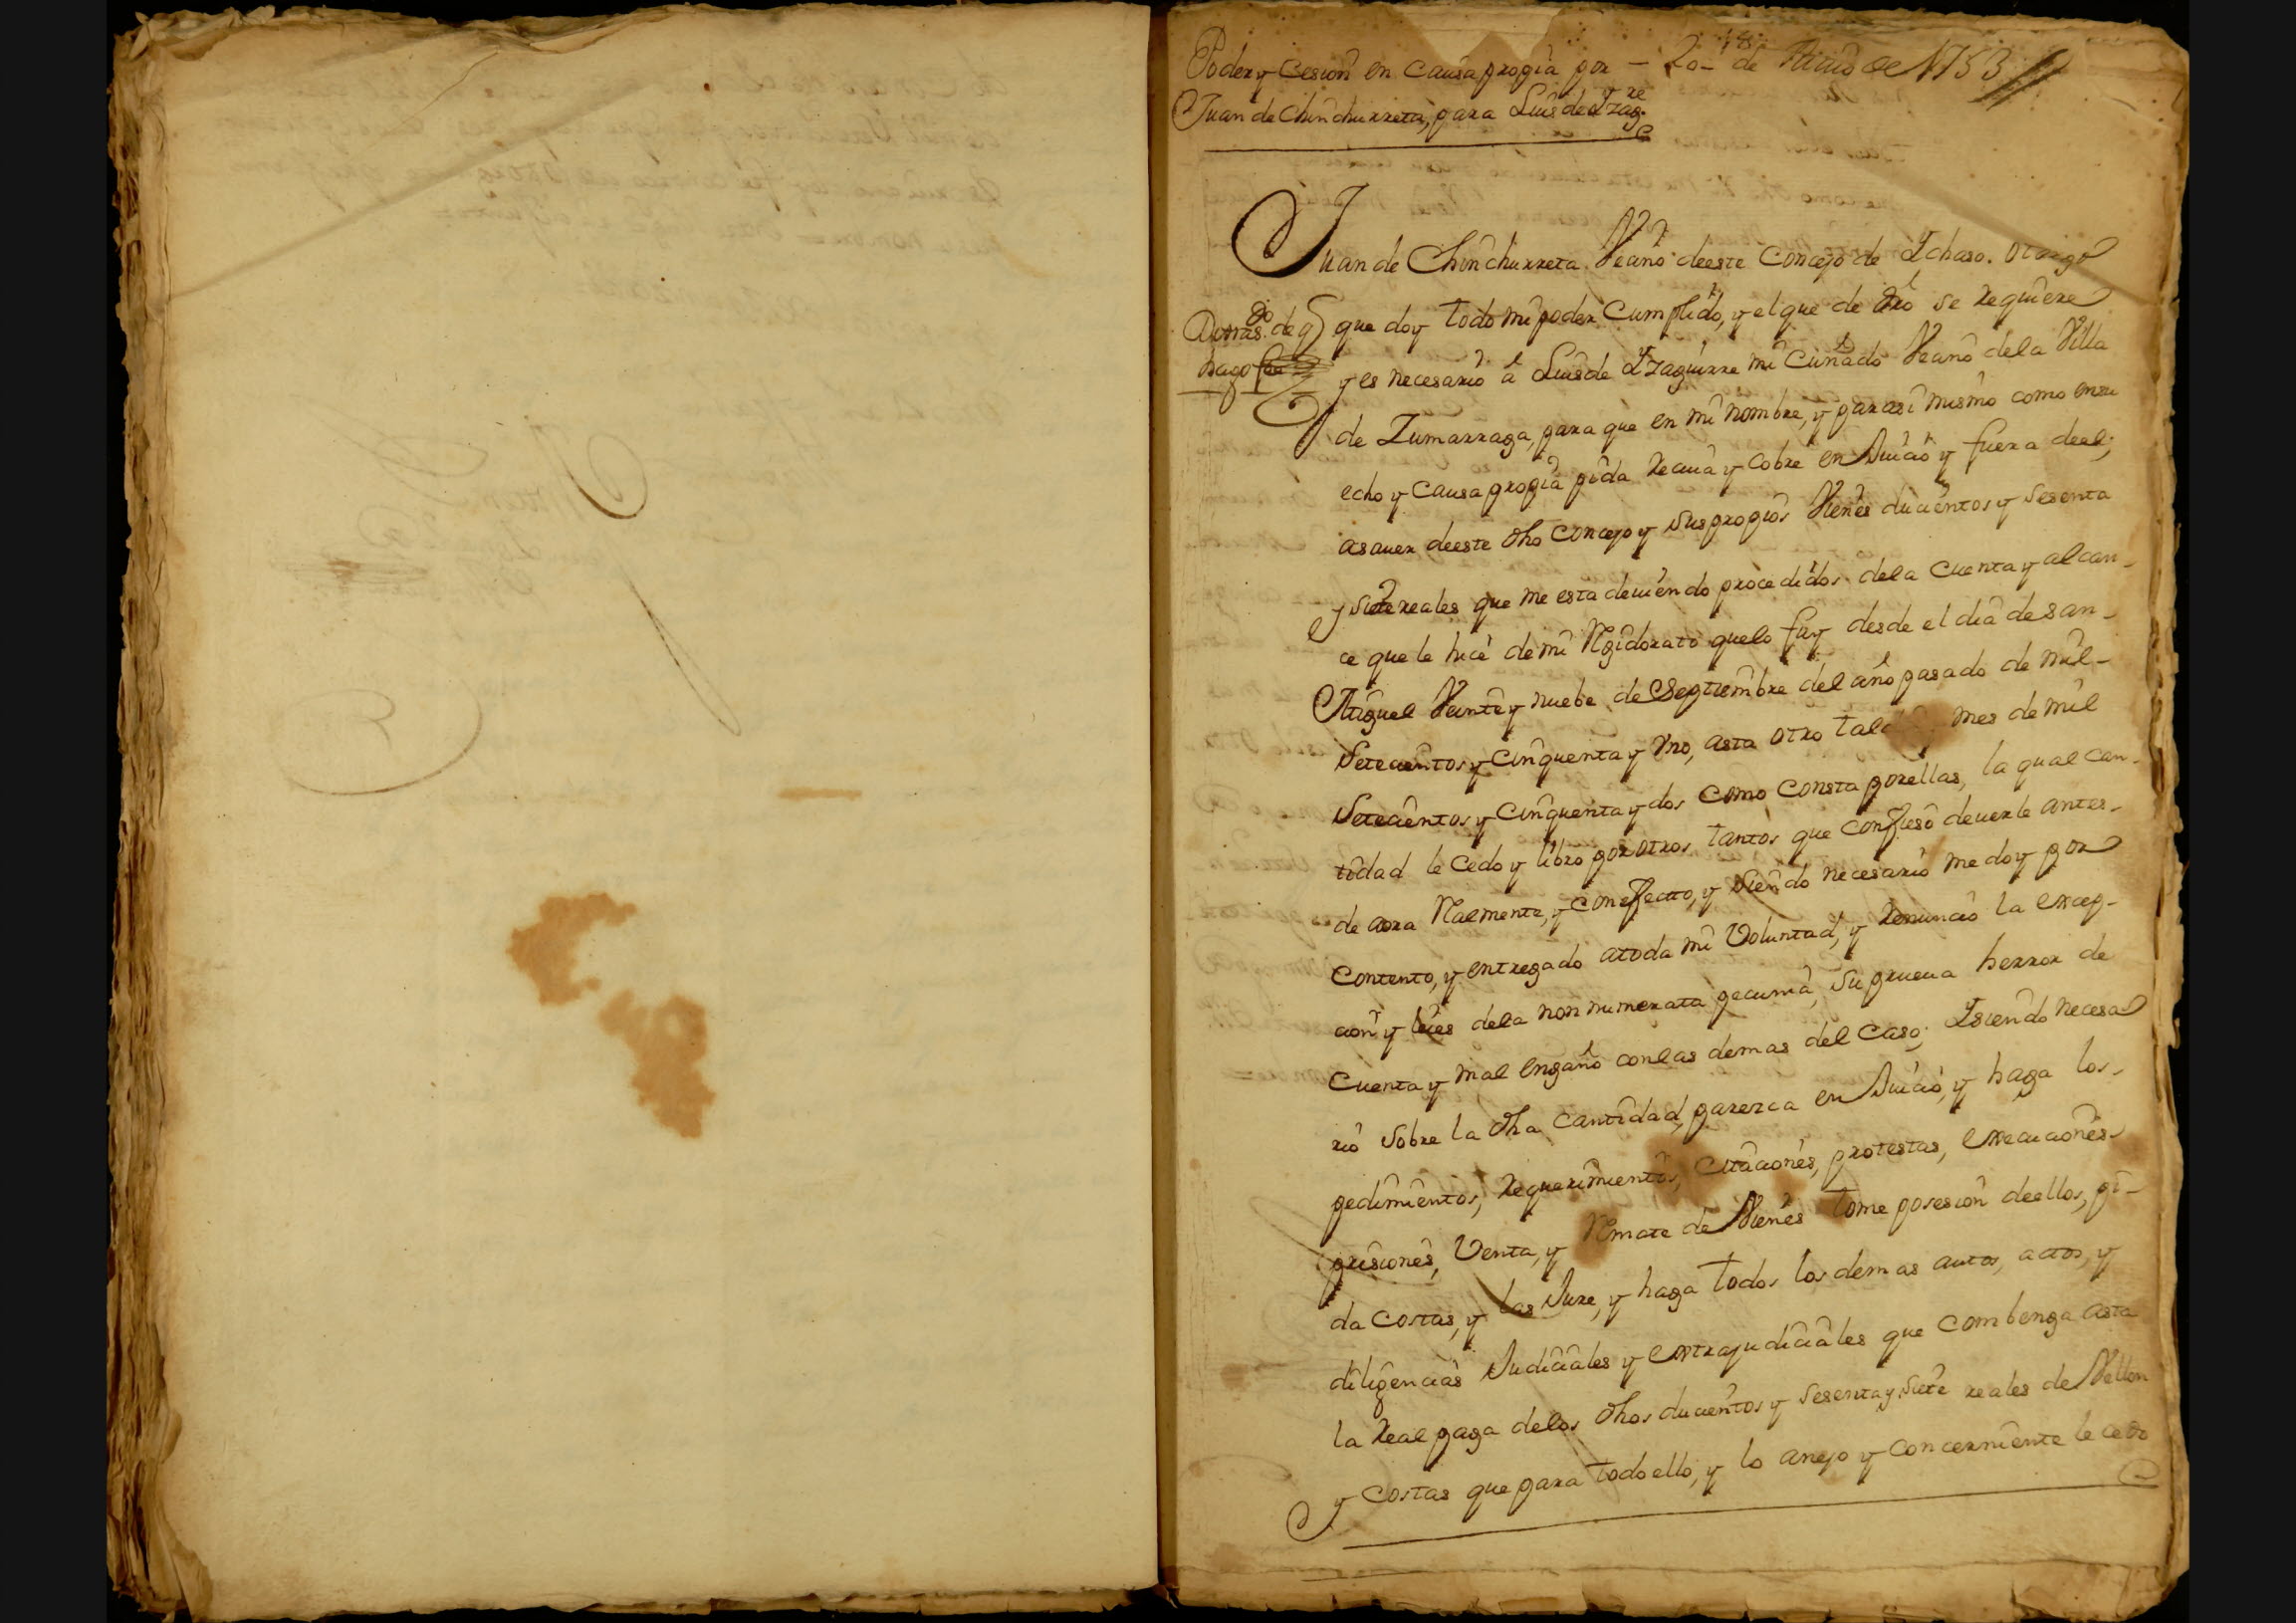 Poder y Cesion en causa propia por — 20 — de de 1753
Juan de Chinchurreta, para Luis de Yzag.re
Juan de Chinchurreta Vecino deeste Concejo de Ychaso. Otorgo
que doy todo mi poder Cumplido, y el que de dro se requiere
y es necesario â Luis de Yzaguirre mi Cuñado Vecino dela Villa
de Zumarraga, para que en mi nombre, y parasi mismo como ensu
echo y Causa propia pida reciua y cobre en Juicio y fuera deel;
asauer deeste dho Concejo y sus propios Vienes ducientos y sesenta
y siete reales que me esta deuiendo procedidos dela Cuenta y alcan-
ce que le hice de mi Rexidorato quelo fuy desde el dia de san-
Miguel Veinte y nuebe de Septiembre del año pasado de mil-
Setecientos y Cinquenta y Vno, asta otro tal mes de mil
Setecientos y Cinquenta y dos como Consta porellas, la qual can-
tidad le Cedo y libro por otros tantos que confieso deuerle antes-
de aora Realmente, y con effecto, y siendo necesario me doy por
Contento, y entregado atoda mi Voluntad, y renuncio la excep-
cion y leies dela non numerata pecunia, su prueua herror de
Cuenta y mal engaño conlas demas del Caso; Ysiendo necesa
rio sobre la dha Cantidad, parezca en Juicio, y haga los-
pedimientos, requerimientos, Citaciones, protestas, execuciones-
prisiones, Venta, y Remate de Vienes tome posesion deellos, pi-
da costas, y las Jure, y haga todos los demas autos, actos, y
diligencias Judiciales y extrajudiciales que combenga asta
la Real paga delos dhos ducientos y sesenta y siete reales de Vellon
y Costas que para todo ello, y lo anejo y concerniente le cedo